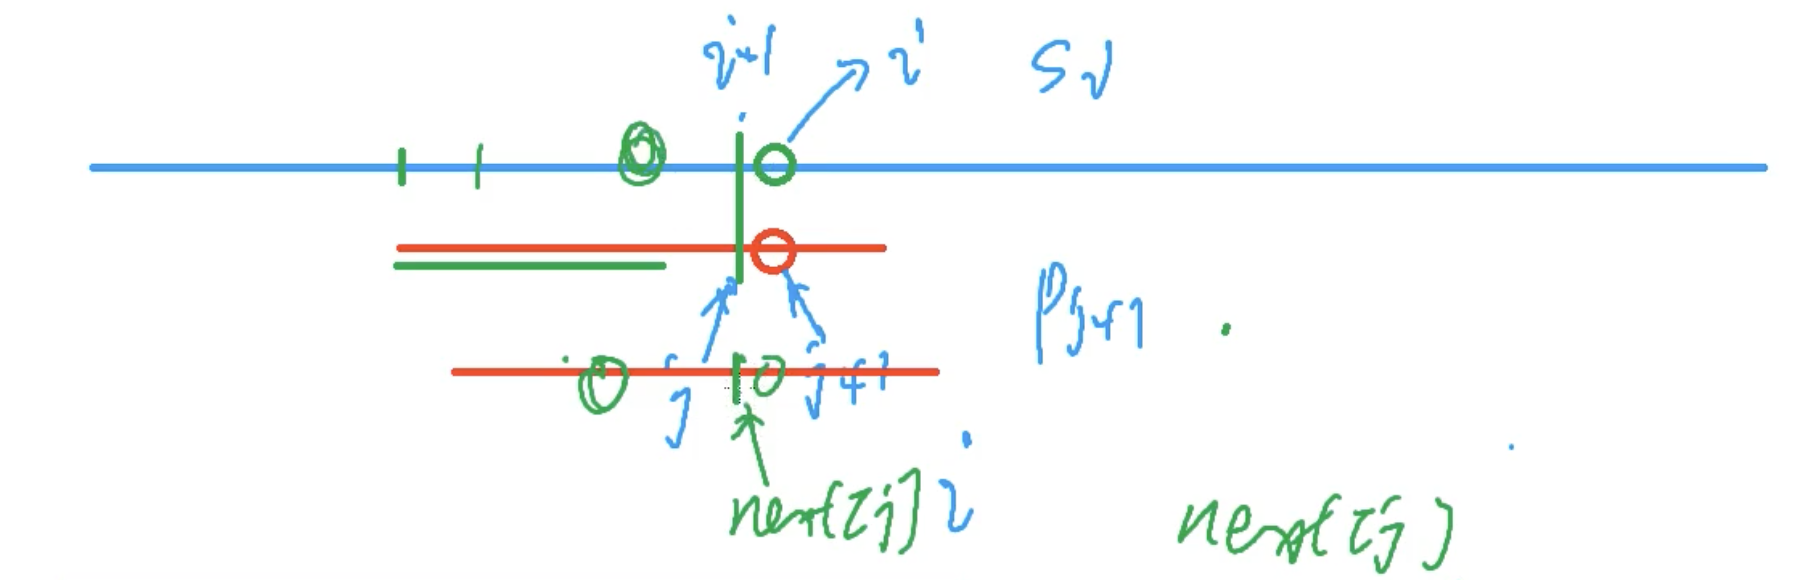 i-1 i Si
Pj+1
j j+1
next[j] i next[j]